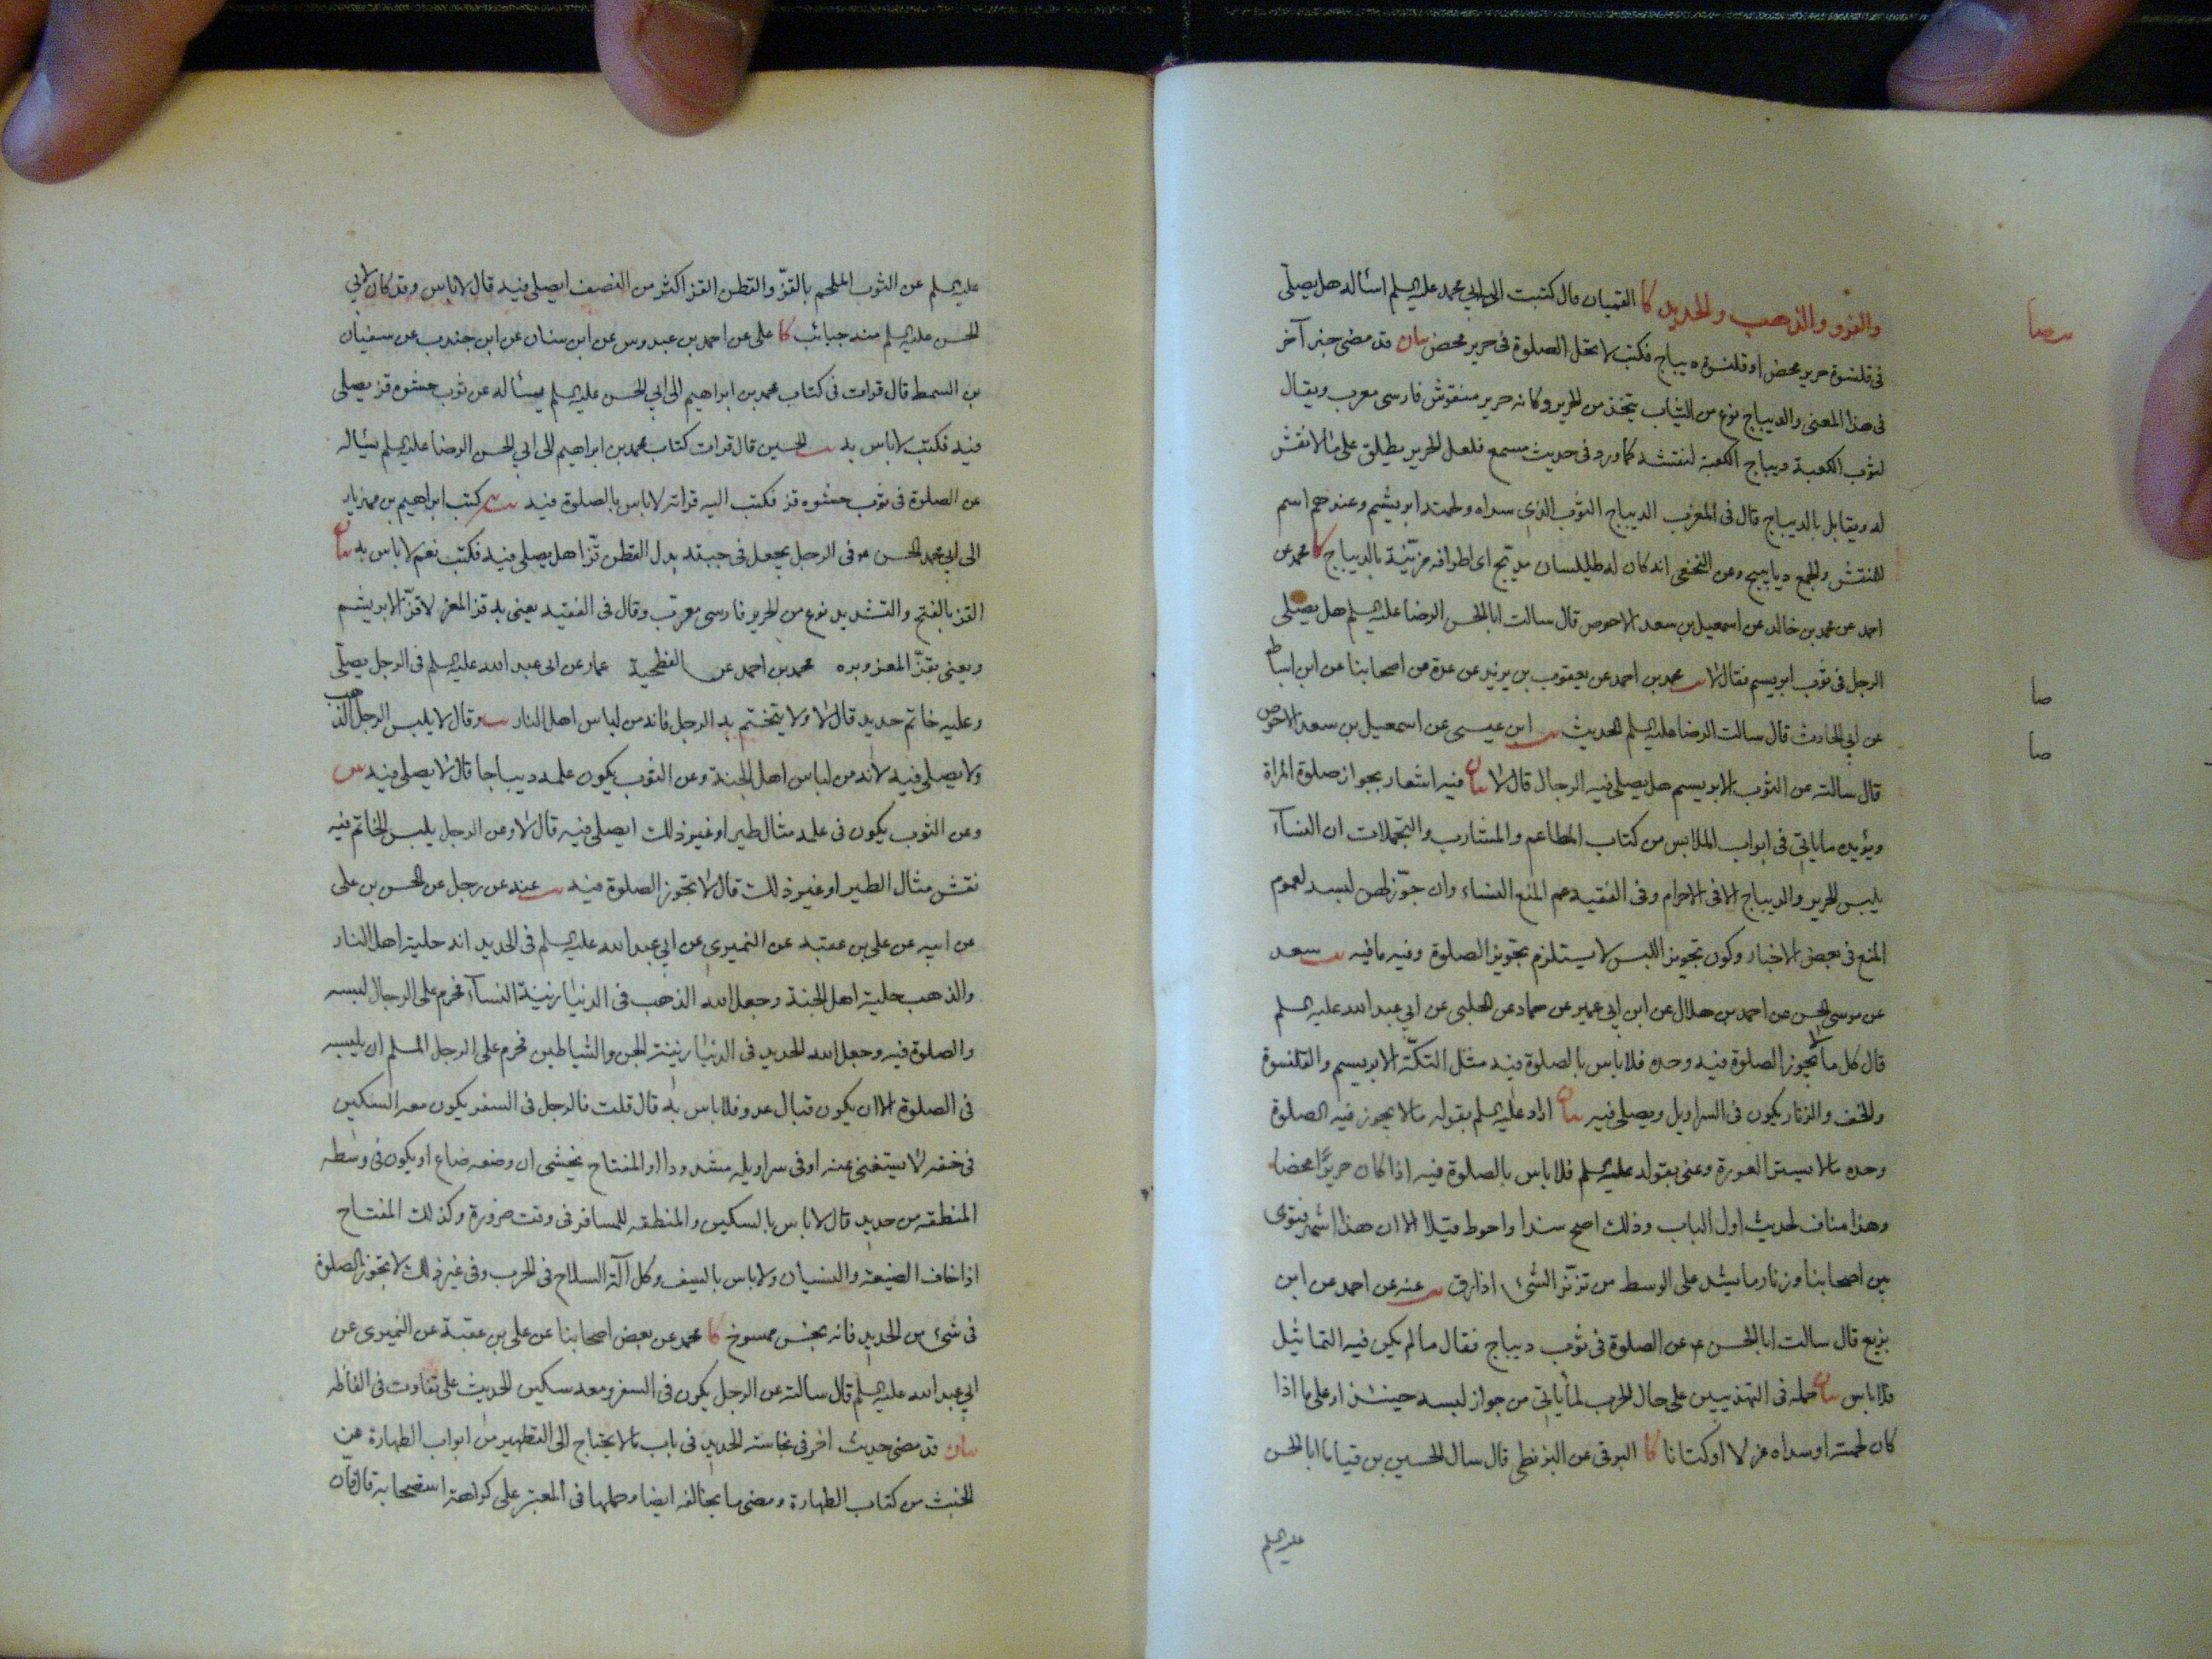 والقز والذهب والحديد كا القميان قال كتبت الى ابي محمد عليه السلم اسئاله هل يصلى
فى قلنسوة حرير محض او قلنسوة ديباج فكتب لا تحل الصلوة فى حرير محض بيان قد مضى خبر آخر
فى هذا المعنى والديباج نوع من الثياب يتخذ من الحرير وكانه حرير منقوش فارسى معرب ويقال
لثوب الكعبة ديباج الكعبة لنقشه كما ورد فى حديث مسمع فلعل الحرير يطلق على ما لا نقش
له ويقابل بالديباج قال فى المغرب الديباج الثوب الذى سداه ولحمته ابريشم وعندهم اسم
للمنقش والجمع ديابيج وعن النخعى انه كان له طيلسان مدبج اى اطرافه مزينة بالديباج كا محمد عن
احمد عن محمد بن خالد عن اسمعيل بن سعد الاحوص قال سالت ابا الحسن الرضا عليه السلم هل يصلى
الرجل فى ثوب ابريسم فقال لا يب محمد بن احمد عن يعقوب بن يزيد عن عدة من اصحابنا عن ابن اسباط
عن ابي الحارث قال سالت الرضا عليه السلم الحديث يب ابن عيسى عن اسمعيل بن سعد الاحوص
قال سالته عن الثوب الابريسم هل يصلى فيه الرجال قال لا بيان فيه اشعار بجواز صلوة المراة
ويؤيده ما ياتي فى ابواب الملابس من كتاب المطاعم والمشارب والتجملات ان النسآء
يلبس الحرير والديباج الا فى الاحرام وفى الفقيه عمم المنع النساء وان جوّز لهن لبسه لعموم
المنع فى بعض الاخبار وكون تجويز اللبس لا يستلزم تجويز الصلوة وفيه ما فيه يب سعد
عن موسى الحسن عن احمد بن هلال عن ابن ابي عمير عن حماد عن الحلبى عن ابي عبد الله عليه السلم
قال كل ما لا تجوز الصلوة فيه وحده فلا باس بالصلوة فيه مثل التكّة الابريسم والقلنسوة
والخف والزنار يكون فى السراويل ويصلى فيه بيان اراد عليه السلم بقوله ما لا يجوز فيه الصلوة
وحده ما لا يستر العورة وعنى بقوله عليه السلم فلا باس بالصلوة فيه اذا كان حريرًا محضا
وهذا مناف لحديث اول الباب وذلك اصح سندا واحوط قيلا الا ان هذا اشهر فتوى
بين اصحابنا وزنار ما يشد على الوسط من تزنّر الشئ اذا رق يب عنه عن احمد عن ابن
بزيع قال سالت ابا الحسن ع عن الصلوة فى ثوب ديباج فقال ما لم يكن فيه التماثيل
فلا باس بيان حمله فى التهذيبين على حال الحرب لما ياتي من جواز لبسه حينئذ او على ما اذا
كان لحمته او سداه غزلا او كتانا كا البرقى عن البزنطى قال سال الحسين بن قياما ابا الحسن
عليه السلم
بيصا
صا
صا
عليه السلم عن الثوب الملحم بالقزّ والقطن القز اكثر من النصف ايصلى فيه قال لا باس وقد كان لابي
الحسن عليه السلم منه جبائب كا على عن احمد بن عبدوس عن ابن سنان عن ابن جندب عن سفيان
بن السمط قال قرات فى كتاب محمد بن ابراهيم الى ابي الحسن عليه السلم يسئاله عن ثوب حشوه قز يصلى
فيه فكتب لا باس به يب الحسين قال قرات كتاب محمد بن ابراهيم الى ابي الحسن الرضا عليه السلم يسئاله
عن الصلوة فى ثوب حشوه قز فكتب اليه قراته لا باس بالصلوة فيه يه كتب ابراهيم بن مهزيار
الى ابي محمد الحسن ع فى الرجل يجعل فى جبته بدل القطن قزا هل يصلى فيه فكتب نعم لا باس به بيان
القز بالفتح والتشديد نوع من الحرير فارسى معرّب وقال فى الفقيه يعنى به قز المعز لا قزّ الابريشم
ويعنى بقزّ المعز وبره محمد بن احمد عن الفطحية عمار عن ابى عبد الله عليه السلم فى الرجل يصلّى
وعليه خاتم حديد قال لا ولا يتختم به الرجل فانه من لباس اهل النار يب وقال لا يلبس الرجل الذهب
ولا يصلى فيه لانه من لباس اهل الجنة وعن الثوب يكون علمه ديباجا قال لا يصلى فيه س
وعن الثوب يكون فى علمه مثال طير او غير ذلك ايصلى فيه قال لا وعن الرجل يلبس الخاتم فيه
نقش مثال الطير او غير ذلك قال لا تجوز الصلوة فيه يب عنه عن رجل عن الحسن بن على
عن ابيه عن على بن عقبة عن النميرى عن ابي عبد الله عليه السلم فى الحديد انه حلية اهل النار
والذهب حلية اهل الجنة وجعل الله الذهب فى الدنيا زينة النسآء فحرم على الرجال لبسه
والصلوة فيه وجعل الله الحديد فى الدنيا زينة الجن والشياطين فحرم على الرجل المسلم ان يلبسه
فى الصلوة الا ان يكون قبال عدو فلا باس به قال قلت فالرجل فى السفر يكون معه السكين
فى خفه لا يستغنى عنه او فى سراويله مشدودا او المفتاح يخشى ان وضعه ضاع او يكون فى وسطه
المنطقه من حديد قال لا باس بالسكين والمنطقه للمسافر فى وقت ضرورة وكذلك المفتاح
اذا خاف الضيعة والنسيان ولا باس بالسيف وكل آلة السلاح فى الحرب وفى غير ذلك لا تجوز الصلوة
فى شئ من الحديد فانه نجس ممسوخ كا محمد عن بعض اصحابنا عن على بن عقبة عن النميرى عن
ابي عبد الله عليه السلم قال سالته عن الرجل يكون فى السفر ومعه سكين الحديث على تفاوت فى الفاظه
بيان قد مضى حديث اخر فى نجاسة الحديد فى باب ما لا يحتاج الى التطهير من ابواب الطهارة عن
الخبث من كتاب الطهارة ومضى ما يخالفه ايضا وحملها فى المعتبر على كراهة استصحابه قال فان